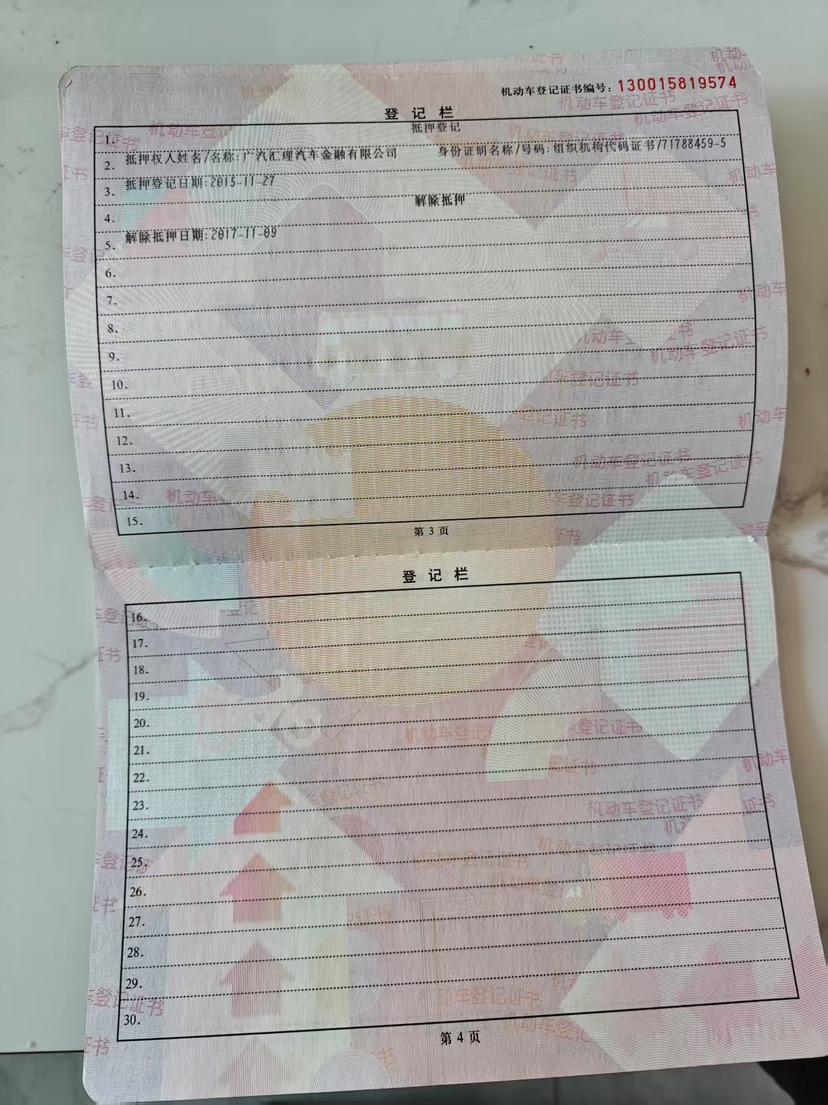 机动车登记证书编号：130015819574
登记栏
1. 抵押登记
2. 抵押权人姓名/名称:广汽汇理汽车金融有限公司 身份证明名称/号码:组织机构代码证书/71788459-5
3. 抵押登记日期:2015-11-27
4. 解除抵押
5. 解除抵押日期:2017-11-09
6.
7.
8.
9.
10.
11.
12.
13.
14.
15.
第3页
登记栏
16.
17.
18.
19.
20.
21.
22.
23.
24.
25.
26.
27.
28.
29.
30.
第4页